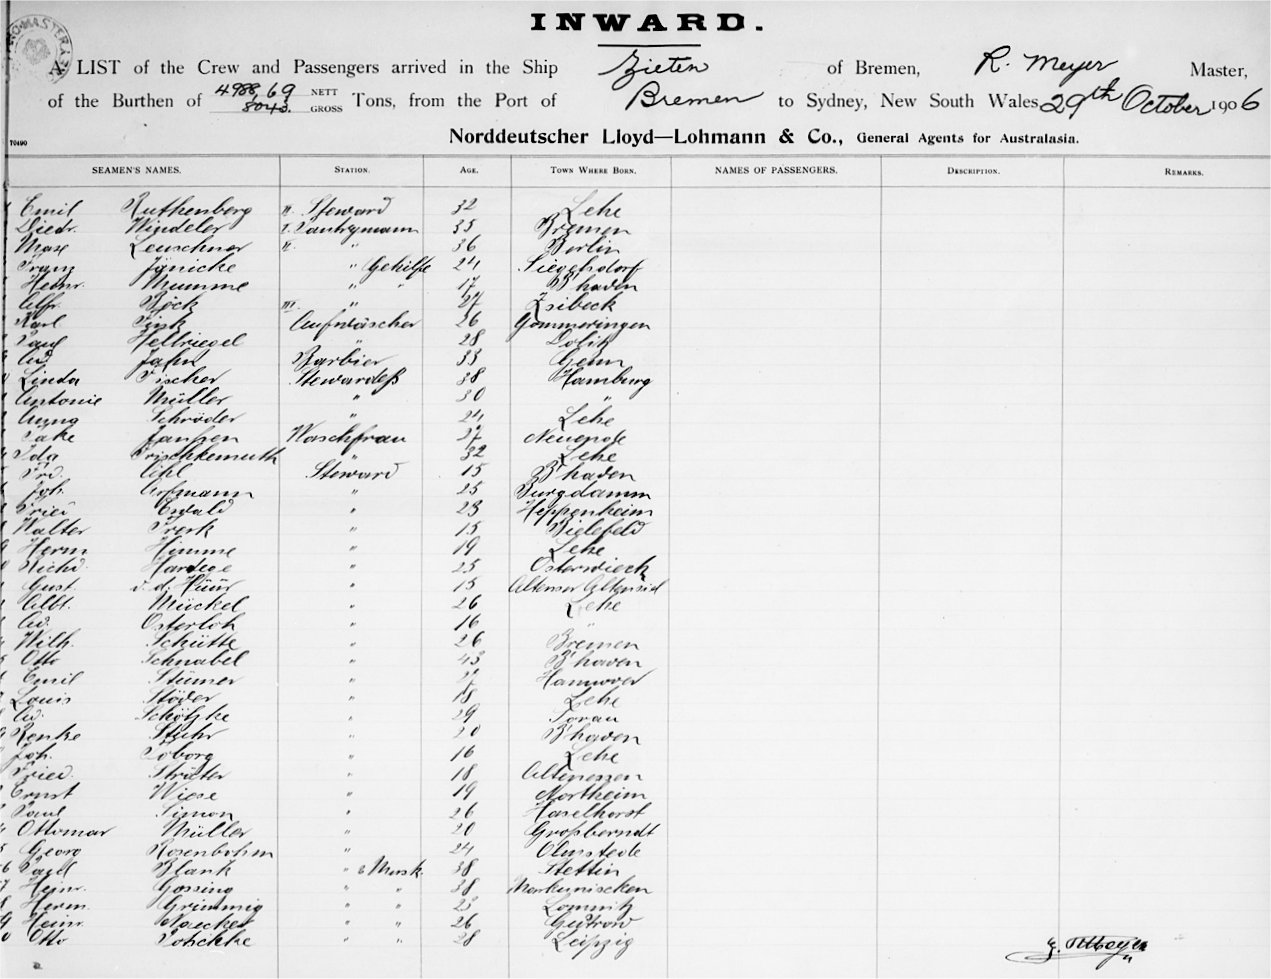 INWARD.
A LIST of the Crew and Passengers arrived in the Ship Zieten of Bremen, R. Meyer Master,
of the Burthen of 4988,69 NETT 8043. GROSS Tons, from the Port of Bremen to Sydney, New South Wales 29th October 1906
Norddeutscher Lloyd—Lohmann & Co., General Agents for Australasia.
70490
SEAMEN'S NAMES. STATION. AGE. TOWN WHERE BORN. NAMES OF PASSENGERS. DESCRIPTION. REMARKS.
Emil Ruthenberg II. Steward 32 Lehe
Diedr. Windeler I. Pantrymann 35 Bremen
Max Leuschner II. " 36 Berlin
Franz Jänicke " Gehilfe 24 Siegelsdorf
Heinr. Mumme " " 17 B'haven
Alfr. Böck III " 27 Zsibeck
Karl Fink Aufwäscher 26 Gommeringen
Paul Hellriegel " 28
Ad. Jahn Barbier 33
Linda Fischer Stewardeß 38 Hamburg
Antonie Müller " 30 "
Anna Schröder " 24 Lehe
Take Janssen Waschfrau 37 Neuende
Ida Frischkemuth " 32 Lehe
Frd. Aihl Steward 15 B'haven
Joh. Arfmann " 25 Burgdamm
Fried Ewald " 23 Heppenheim
Walter Frerk " 15 Bielefeld
Herm Hemme " 19 Lehe
Richd. " 25 Osterwieck
Gust. v. d. Hüür " 15
Albt. Mückel " 26 Lehe
Ad. Osterloh " 16 "
Wilh. Schütte " 26 Bremen
Otto Schnabel " 43 B'haven
Emil Stümer " Hannover
Louis Stöver " 18 Lehe
Ad. Schötzke " 29 Sorau
Renke Stuhr " 20 B'haven
Joh. Toborg " 16 Lehe
Fried. Sträter " 18 Altenessen
Ernst Wiese " 19 Northeim
Paul Simon " 26 Haselhorst
Ottomar Müller " 20 Großberndt
Georg Rosenbohm " 24 Olmstede
Paul Blank " & Musk. 38 Stettin
Heinr. Gossing " " 38
Herm. Grimmig " " 23 Lomnitz
Heinr. Noecker " " 26 Güstrow
Otto Potschke " " 28 Leipzig